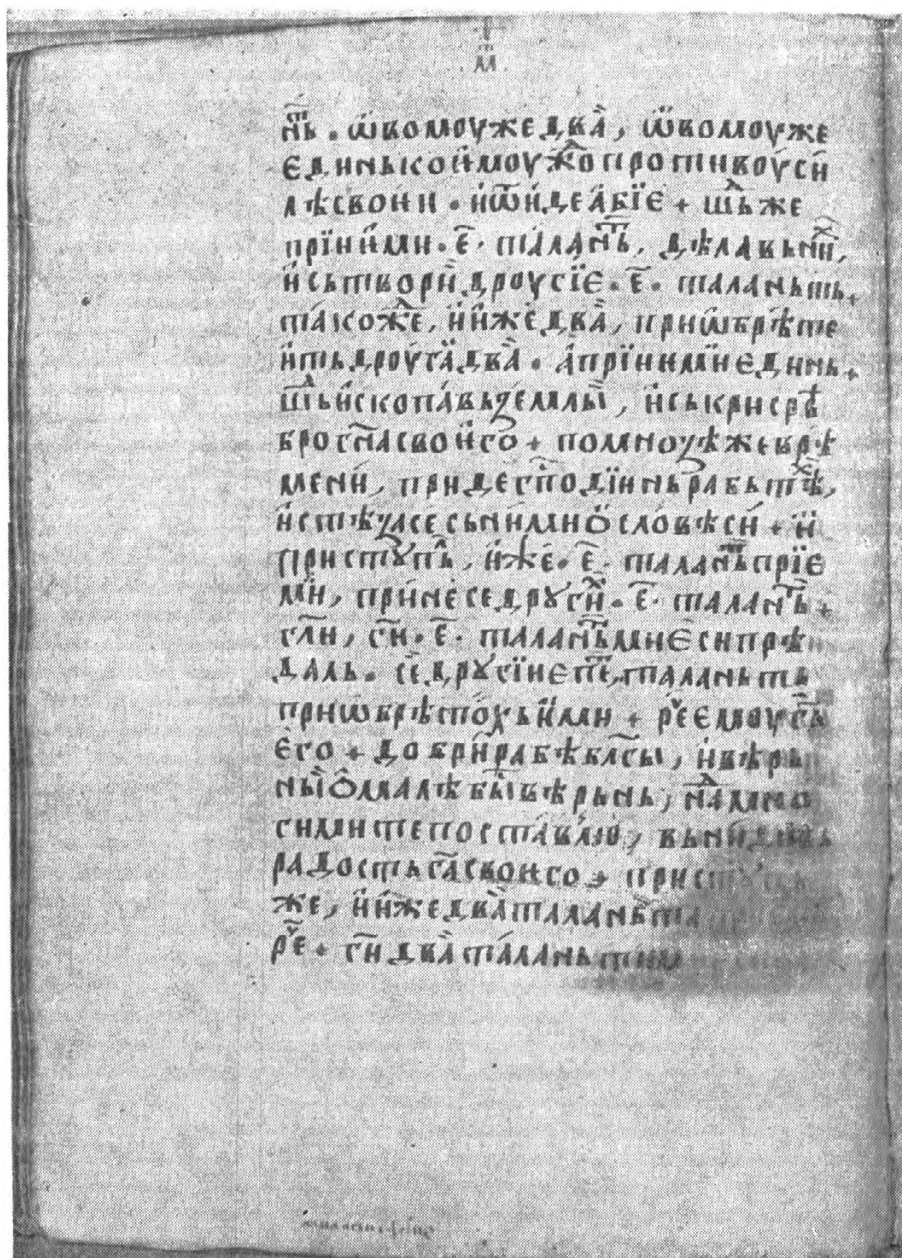 м҃
н̄ть • ѡ҆вомоуже два̀, ѡ҆вомоуже
є҆динькои҆моуж҃о противоу́си
лѣсвои́и • и҆ѿи́деа́бїє + шⷣьже
прїи҆ми • є҃ • тала́нⷮь, дѣлавьниⷯ,
и҆сьтвори̇̀дроугїе • є҃ • таланьть +
та́кожⷣе, и҆и́жедва̀, приѡ҆брѣте
и҆тьдроуга҄два̀ • а҆прїи҆мїиедииь +
шⷣьи҆скопа́вьземлы̀, и҆ськрисрѣ
броги҃асвои҆го + помноуѕѣжеврѣ
мени́, при́дегп҃оди́ньрабьтⷯѣ,
и҆стѣзасесьни́мио҆словѣси́ + и҆
пристꙋплⷣ, и҆́же • є҃ • таланⷮьпрїе
ми́, прине́седрꙋги́ⷯ • є҃ • таланⷮь +
гл҃и, ги҃ • є҃ • таланⷮьмнє́сипрѣ
даль • се҆дрꙋгїиєпⷮє, таланьть
приѡ҆брѣтохьи́ми + реⷱ҇є҆моугⷭ҇ь
є҆го + добри́рабѣблг҃ы, и҆вѣрь
ны̀ѻ҆малѣбы̀вѣрьнь, наⷣмно
гимитепоста́влю, вьни́дивь
радостьга҃свои҆го + присту́пль
же, и҆и́жедва̀талань̀та
реⷱ҇ + ги҃два̀та́ланьтим